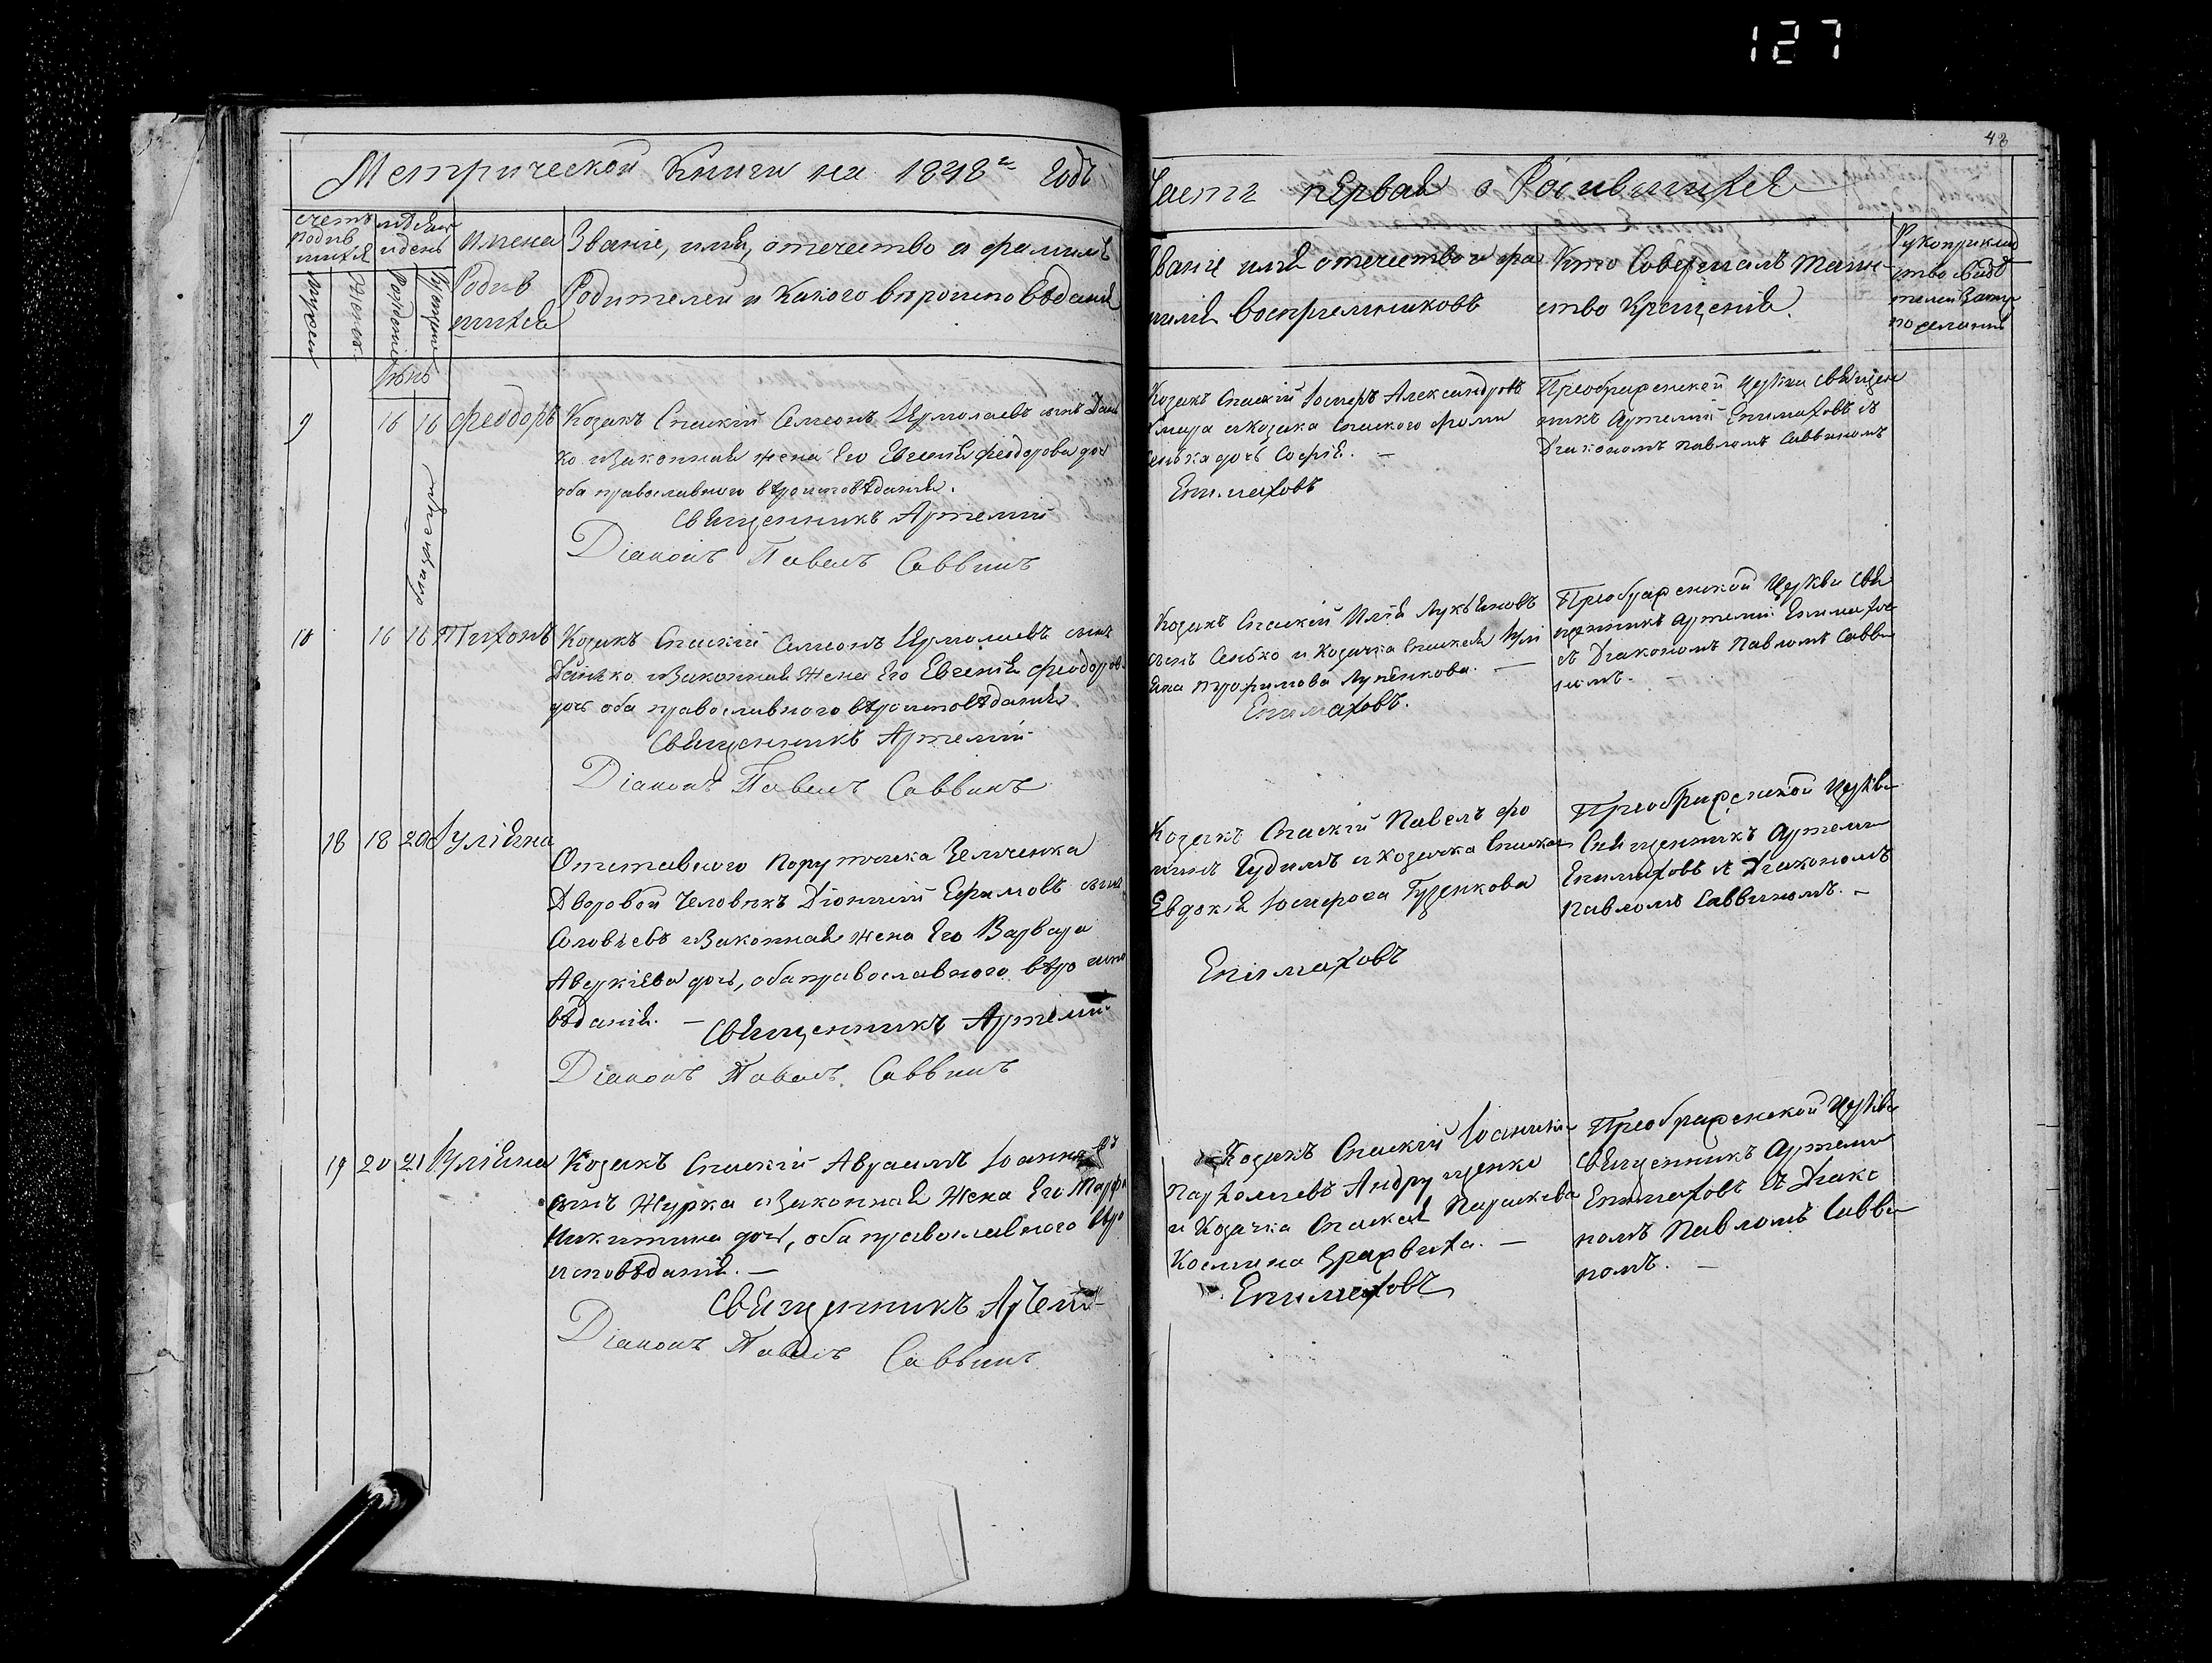 127
48
Метрической Книги на 1848й Годъ
Часть первая о Родившихся
счетъ родив шихся
мѣсяцъ и день
Имена Родив шихся
Званіе, имя, отечество и фамилія
Родителей и какого вѣроисповѣданія
Званіе имя отечество и фа
милія Воспріемниковъ
Кто Совершалъ таин
ство Крещенія
Рукоприклад
ство свидѣ
телей
по желанію
9 16 16 Феодоръ
Козакъ Спаскій Семеонъ Ермолаевъ сынъ Дань
ко и законная жена Его Евгенія Феодорова дочь
оба православного вѣроисповѣданія.
Священникъ Артемій
Діаконъ Павелъ Саввинъ
Козакъ Спаскій Іосифъ Александровъ
и Козака Спаского
Сенька дочь Софія. —
Епимаховъ
Преображенской Церкви Священ
никъ Артемій Епимаховъ съ
Діакономъ Павломъ Саввиномъ
близнецы
10 16 16 Тихонъ
Козакъ Спаскій Семеонъ Ермолаевъ сынъ
Данько и законная Жена Его Евгенія Феодоров
дочь оба православного вѣроисповѣданія
Священникъ Артемій
Діаконъ Павелъ Саввинъ
Козакъ Спаскій Илія Лукъяновъ
сынъ Сенько и Козачка Спаская Іулі
яна Трофимова
Епимаховъ.
Преображенской Церкви Свя
щенникъ Артемій Епимахов
съ Діакономъ Павломъ Савви
номъ. —
18 18 20 Іуліяна
Отставного Порутчика Зеленка
Дворовой Человѣкъ Діонисій Ефимовъ сынъ
Соловьевъ и законная жена Его Варвара
Аверкіева дочь, оба православного вѣро испо
вѣданія. — Священникъ Артемій
Діаконъ Павелъ Саввинъ
Козакъ Спаскій Павелъ Фо
минъ Чудимъ и козачка Спаская
Евдокія Іосифова Гузенкова
Епимаховъ
Преображенской Церкви
Священникъ Артемій
Епимаховъ съ Діакономъ
Павломъ Саввиномъ. —
19 20 21 Іуліяна
Козакъ Спаскій Авраамъ Іоанновъ
сынъ Журка и законная Жена Его Марфа
Никитина дочь, оба православного вѣро
исповѣданія. —
Священникъ Артемій
Діаконъ Павелъ Саввинъ
Козакъ Спаскій Іоанникій
Пархомовъ Андрущенко
и Козачка Спаская Параскева
Космина —
Епимаховъ
Преображенской Церкви
Священникъ Артемій
Епимаховъ съ Діако
номъ Павломъ Савви
номъ. —